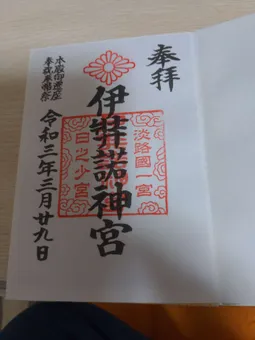 奉拝
淡路國一宮
伊弉諾神宮
日之少宮
本殿御遷座
令和三年三月廿九日